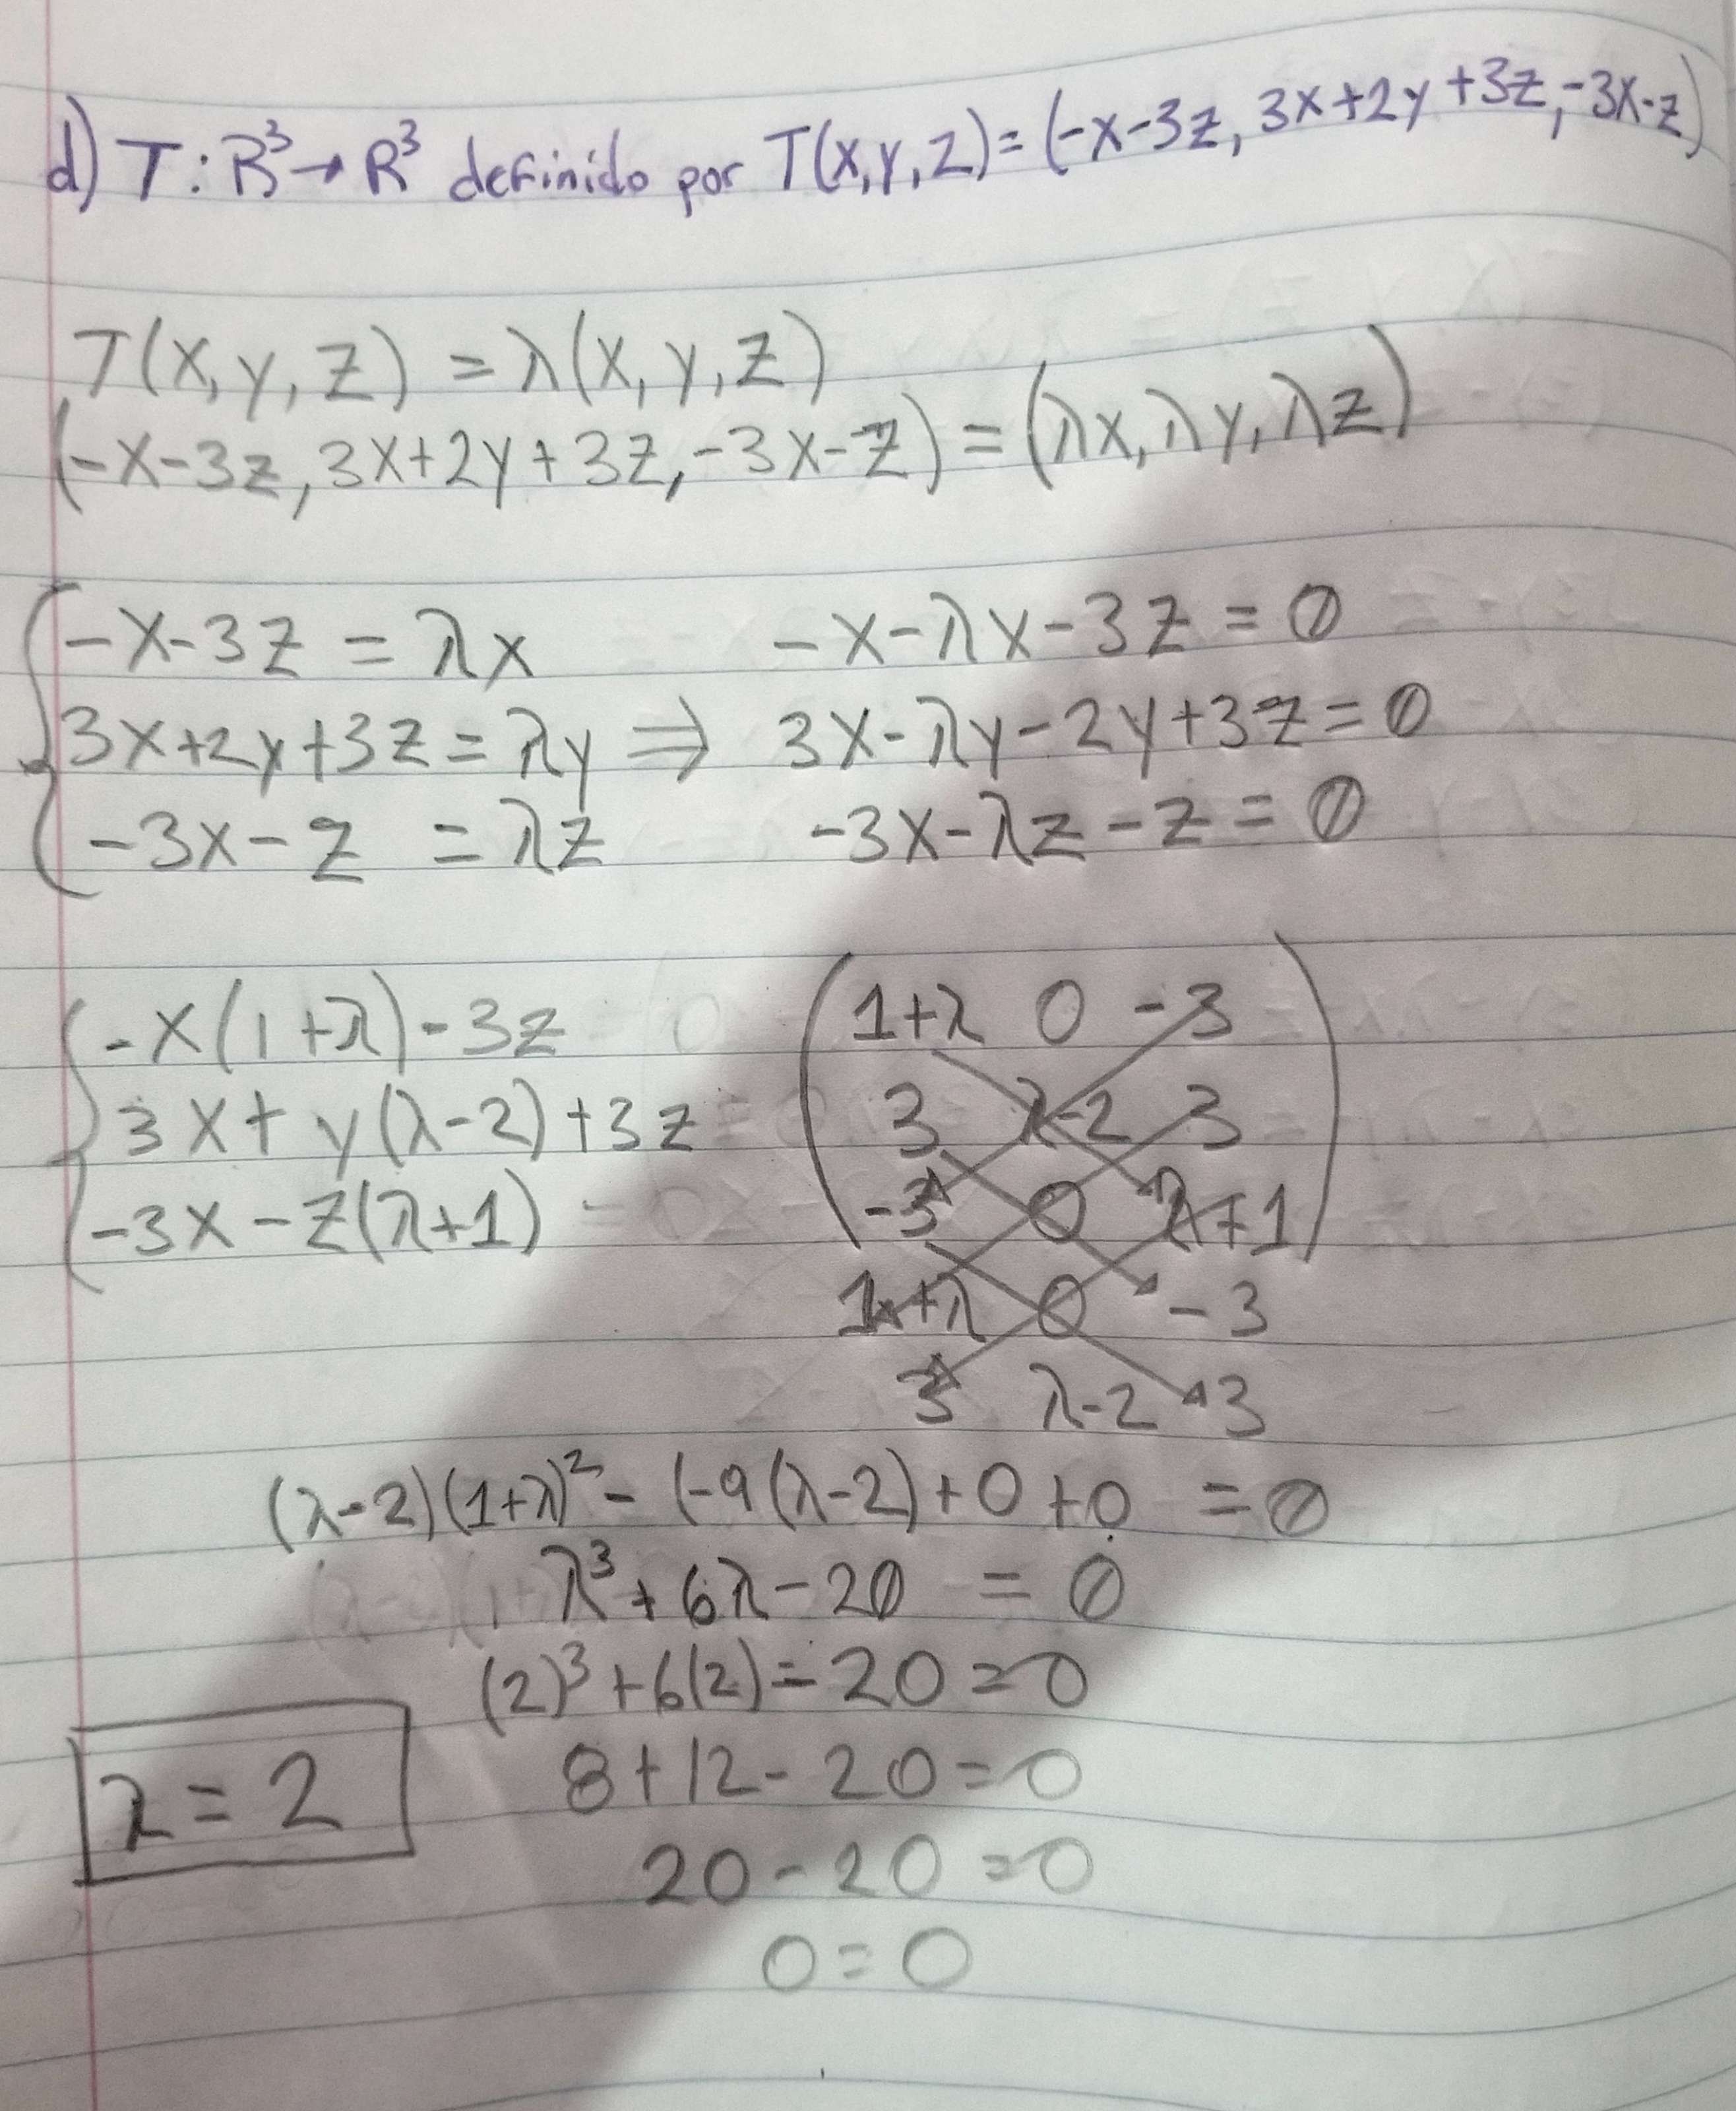 d) T: R³→R³ definido por T(x,y,z)=(-x-3z, 3x+2y+3z,-3x-z)
T(x,y,z) = λ(x,y,z)
(-x-3z,3x+2y+3z,-3x-z)=(λx,λy,λz)
-x-3z = λx -x-λx-3z=0
3x+2y+3z=λy ⇒ 3x-λy-2y+3z=0
-3x-z =λz -3x-λz-z=0
-x(1+λ)-3z
3x+y(λ-2)+3z
-3x-z(λ+1)
1+λ 0 -3
3 λ-2 3
-3 0 λ+1
1+λ 0 -3
3 λ-2 3
(λ-2)(1+λ)²-(-9(λ-2)+0+0 =0
λ³+6λ-20 =0
(2)³+6(2)-20=0
8+12-20=0
λ=2
20-20=0
0=0